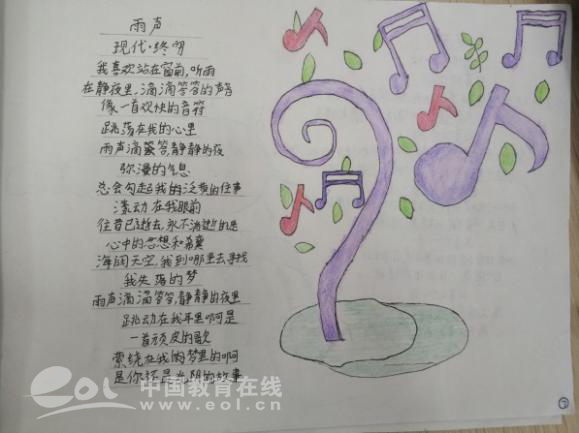 雨声
现代·终明
我喜欢站在窗前,听雨
在静夜里,滴滴答答的声音
像一首欢快的音符
跳荡在我的心里
雨声滴答,静静的夜
弥漫的气息
总会勾起我的泛黄的往事
漾动在我眼前
往昔已逝去,永不消逝的是
心中的思想和希冀
海阔天空,我到哪里去寻找
我失落的梦
雨声滴滴答答,静静的夜里
跳动在我耳里啊是
一首顽皮的歌
萦绕在我的梦里的啊
是你还是光阴的故事
eol 中国教育在线
www.eol.cn